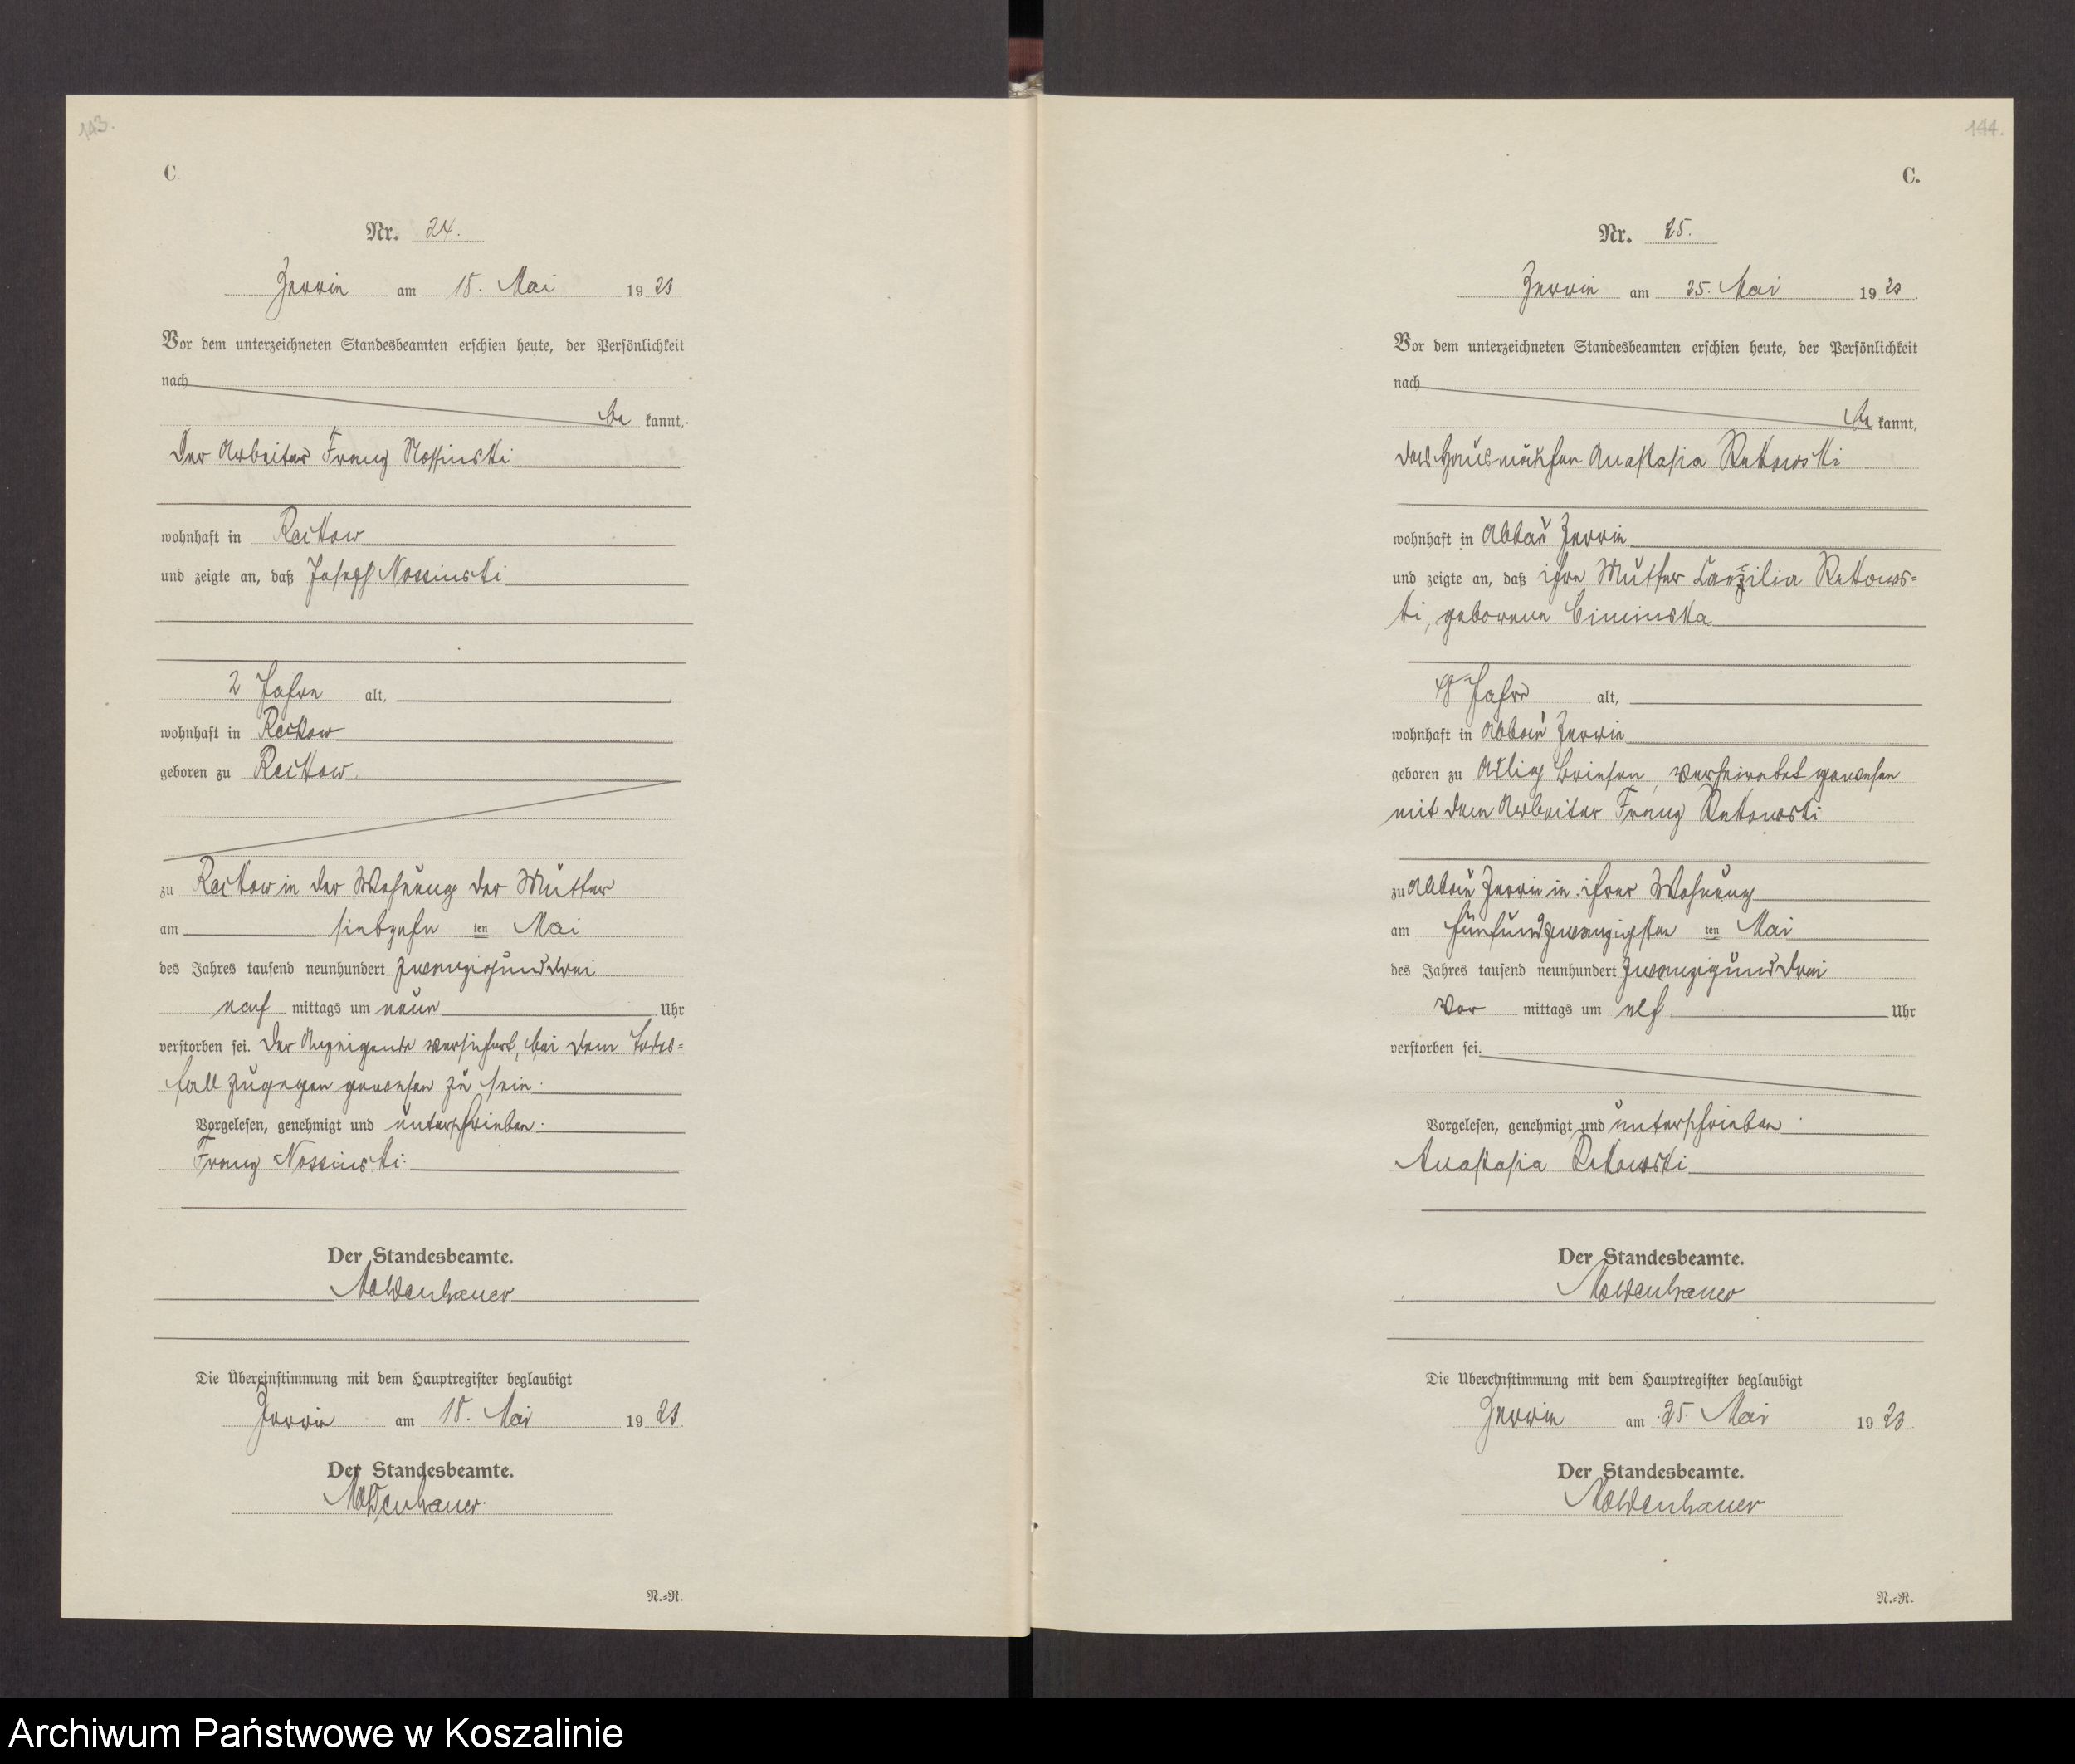 143.
C
Nr. 24.
Zerrin am 18. Mai 1923
Vor dem unterzeichneten Standesbeamten erschien heute, der Persönlichkeit
nach
be kannt,
der Arbeiter Franz Nossinski
wohnhaft in Reckow
und zeigte an, daß Joseph Nossinski
2 Jahre alt,
wohnhaft in Reckow
geboren zu Reckow
zu Reckow in der Wohnung der Mutter
am siebzehn ten Mai
des Jahres tausend neunhundert zwanzigunddrei
nach mittags um neun Uhr
verstorben sei. Der Anzeigende versichert, bei dem Todes=
fall zugegen gewesen zu sein.
Vorgelesen, genehmigt und unterschrieben.
Franz Nossinski.
Der Standesbeamte.
Moldenhauer
Die Übereinstimmung mit dem Hauptregister beglaubigt
Zerrin am 18. Mai 1923
Der Standesbeamte.
Moldenhauer.
N.=R.
144.
C.
Nr. 25.
Zerrin am 25. Mai 1923.
Vor dem unterzeichneten Standesbeamten erschien heute, der Persönlichkeit
nach
be kannt,
das Hausmädchen Anastasia Rekowski
wohnhaft in Abbau Zerrin
und zeigte an, daß ihre Mutter Cäzilia Rekows=
ki, geborene Ciminska
48 Jahre alt,
wohnhaft in Abbau Zerrin
geboren zu Adlig Briesen, verheiratet gewesen
mit dem Arbeiter Franz Rekowski
zu Abbau Zerrin in ihrer Wohnung
am fünfundzwanzigsten ten Mai
des Jahres tausend neunhundert zwanzigunddrei
Vor mittags um elf Uhr
verstorben sei.
Vorgelesen, genehmigt und unterschrieben.
Anastasia Rekowski
Der Standesbeamte.
Moldenhauer
Die Übereinstimmung mit dem Hauptregister beglaubigt
Zerrin am 25. Mai 1923
Der Standesbeamte.
Moldenhauer
N.=R.
Archiwum Państwowe w Koszalinie